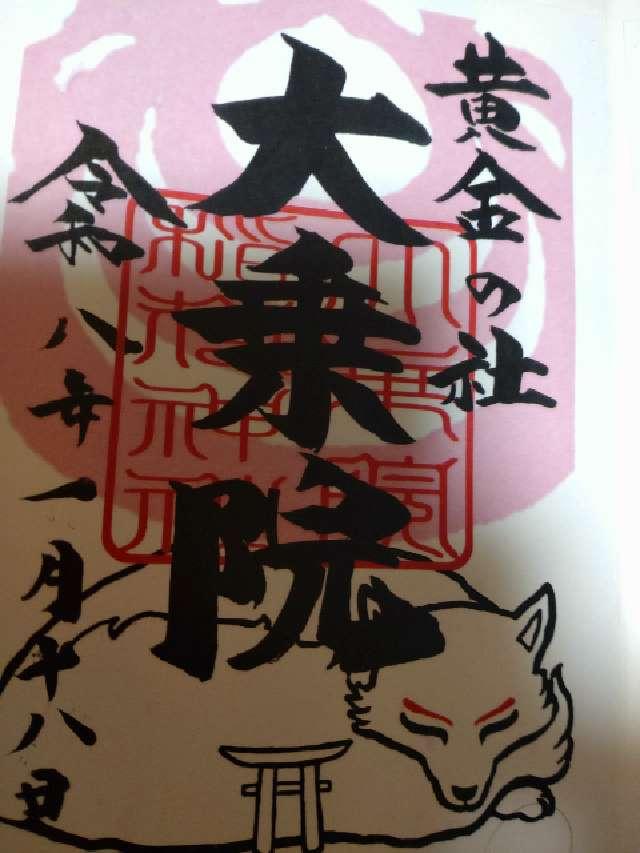 黄金の社
大乗院
令和八年一月十八日